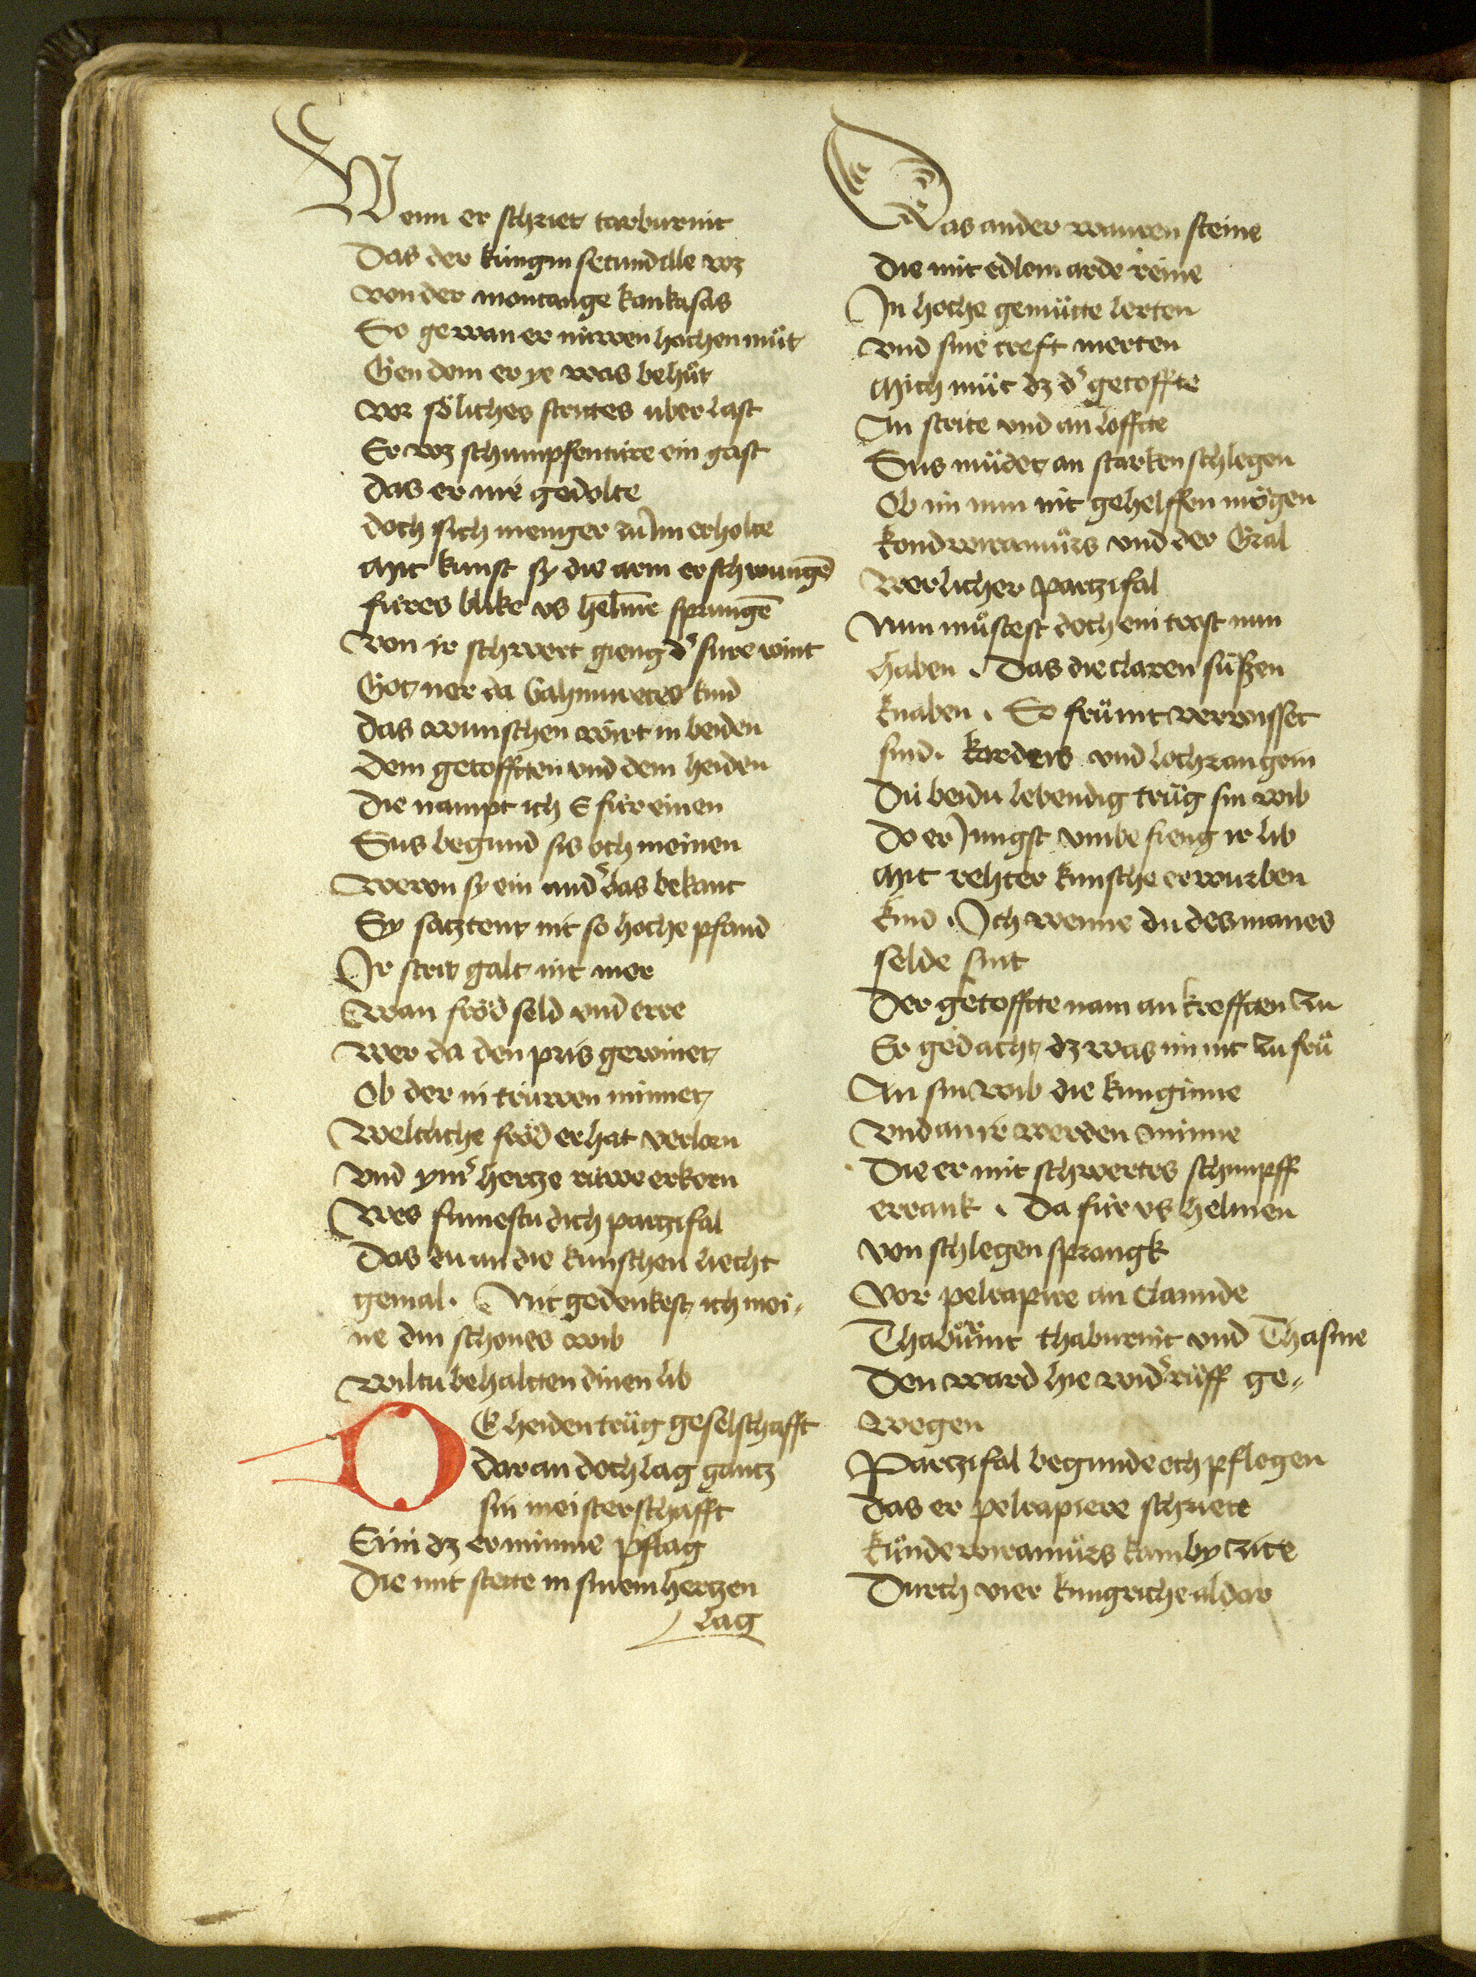 Wenn er schriet tarburnit
Das der kúngin secundille wz
von der montange kaukasas
So gewan er núwen hochen můt
Gen dem er ye was behůt
vor sőliches strites uber last
Er wz schumpfentúre ein gast
das er nie gedolte
doch sich meniger zů Im erholte
Mit kunst sy die arm erschwungē
fúres blike vs helme sprungē
von Ir schwert gieng dˀ sure wint
Got ner da Gahmuretes kind
das wunschen wirt in beiden
Dem getofften vnd dem heiden
die nampt ich E fúr einen
Sus begund sis och meinen
weren sy ein andˀ das bekant
Sy satztent nit so hoche pfand
Ir strit galt nit mer
wan frőd seld vnd erre
wer da den pris gewinet
Ob der in trúwen minnet
weltliche frőd er hat verlorn
vnd ymˀ hertze rúwe erkorn
wes sumestu dich partzifal
das du an die kúnschen liecht
gemal . Nit gedenkest ich mei-
ne din schones wib
wiltu behaltten dinen lib
DEr heiden trůg geselschafft
dar an doch lag gantz
sin meisterschafft
Ein dz er minne pflag
Die mit stette in sinem hertzen
lag
Das ander wauren steine
die mit edlem arde reine
In hoche gemůtte lerten
vnd sine creft merten
Mich můt dz dˀ getoffte
An strite vnd an loffte
Sus můdet an starken schlegen
Ob im nun nit gehelffen mőgen
kondwiramůrs vnd der Gral
werlicher partzifal
Nun můstest doch ein trost nun
haben . Das die claren sůszen
knaben . So frůmt verwisset
sind . kardeis vnd lochrangein
Dú beidú lebendig trůg sin wib
Do er Jungst vmbe fieng ir lib
Mit rehter kúnsche erwurben
kind . Ich wenne du des manes
selde sint
Der getoffte nam an krefften zu
Er gedacht dz was im nit zu frů
An sin wib die kunginne
vnd an ir werden minne
Die er mit schwertes schimpff
errank . Da fúr vs helmen
von schlegen sprangk
vor pelrapire an Clamide
Thabúrnit thaburnit vnd Thasme
Den ward hie widˀ růff ge-
wegen
Partzifal begunde och pflegen
das er pelrapiere schriett
kúndewiramůrs kam by zite
Durch vier kungriche aldar